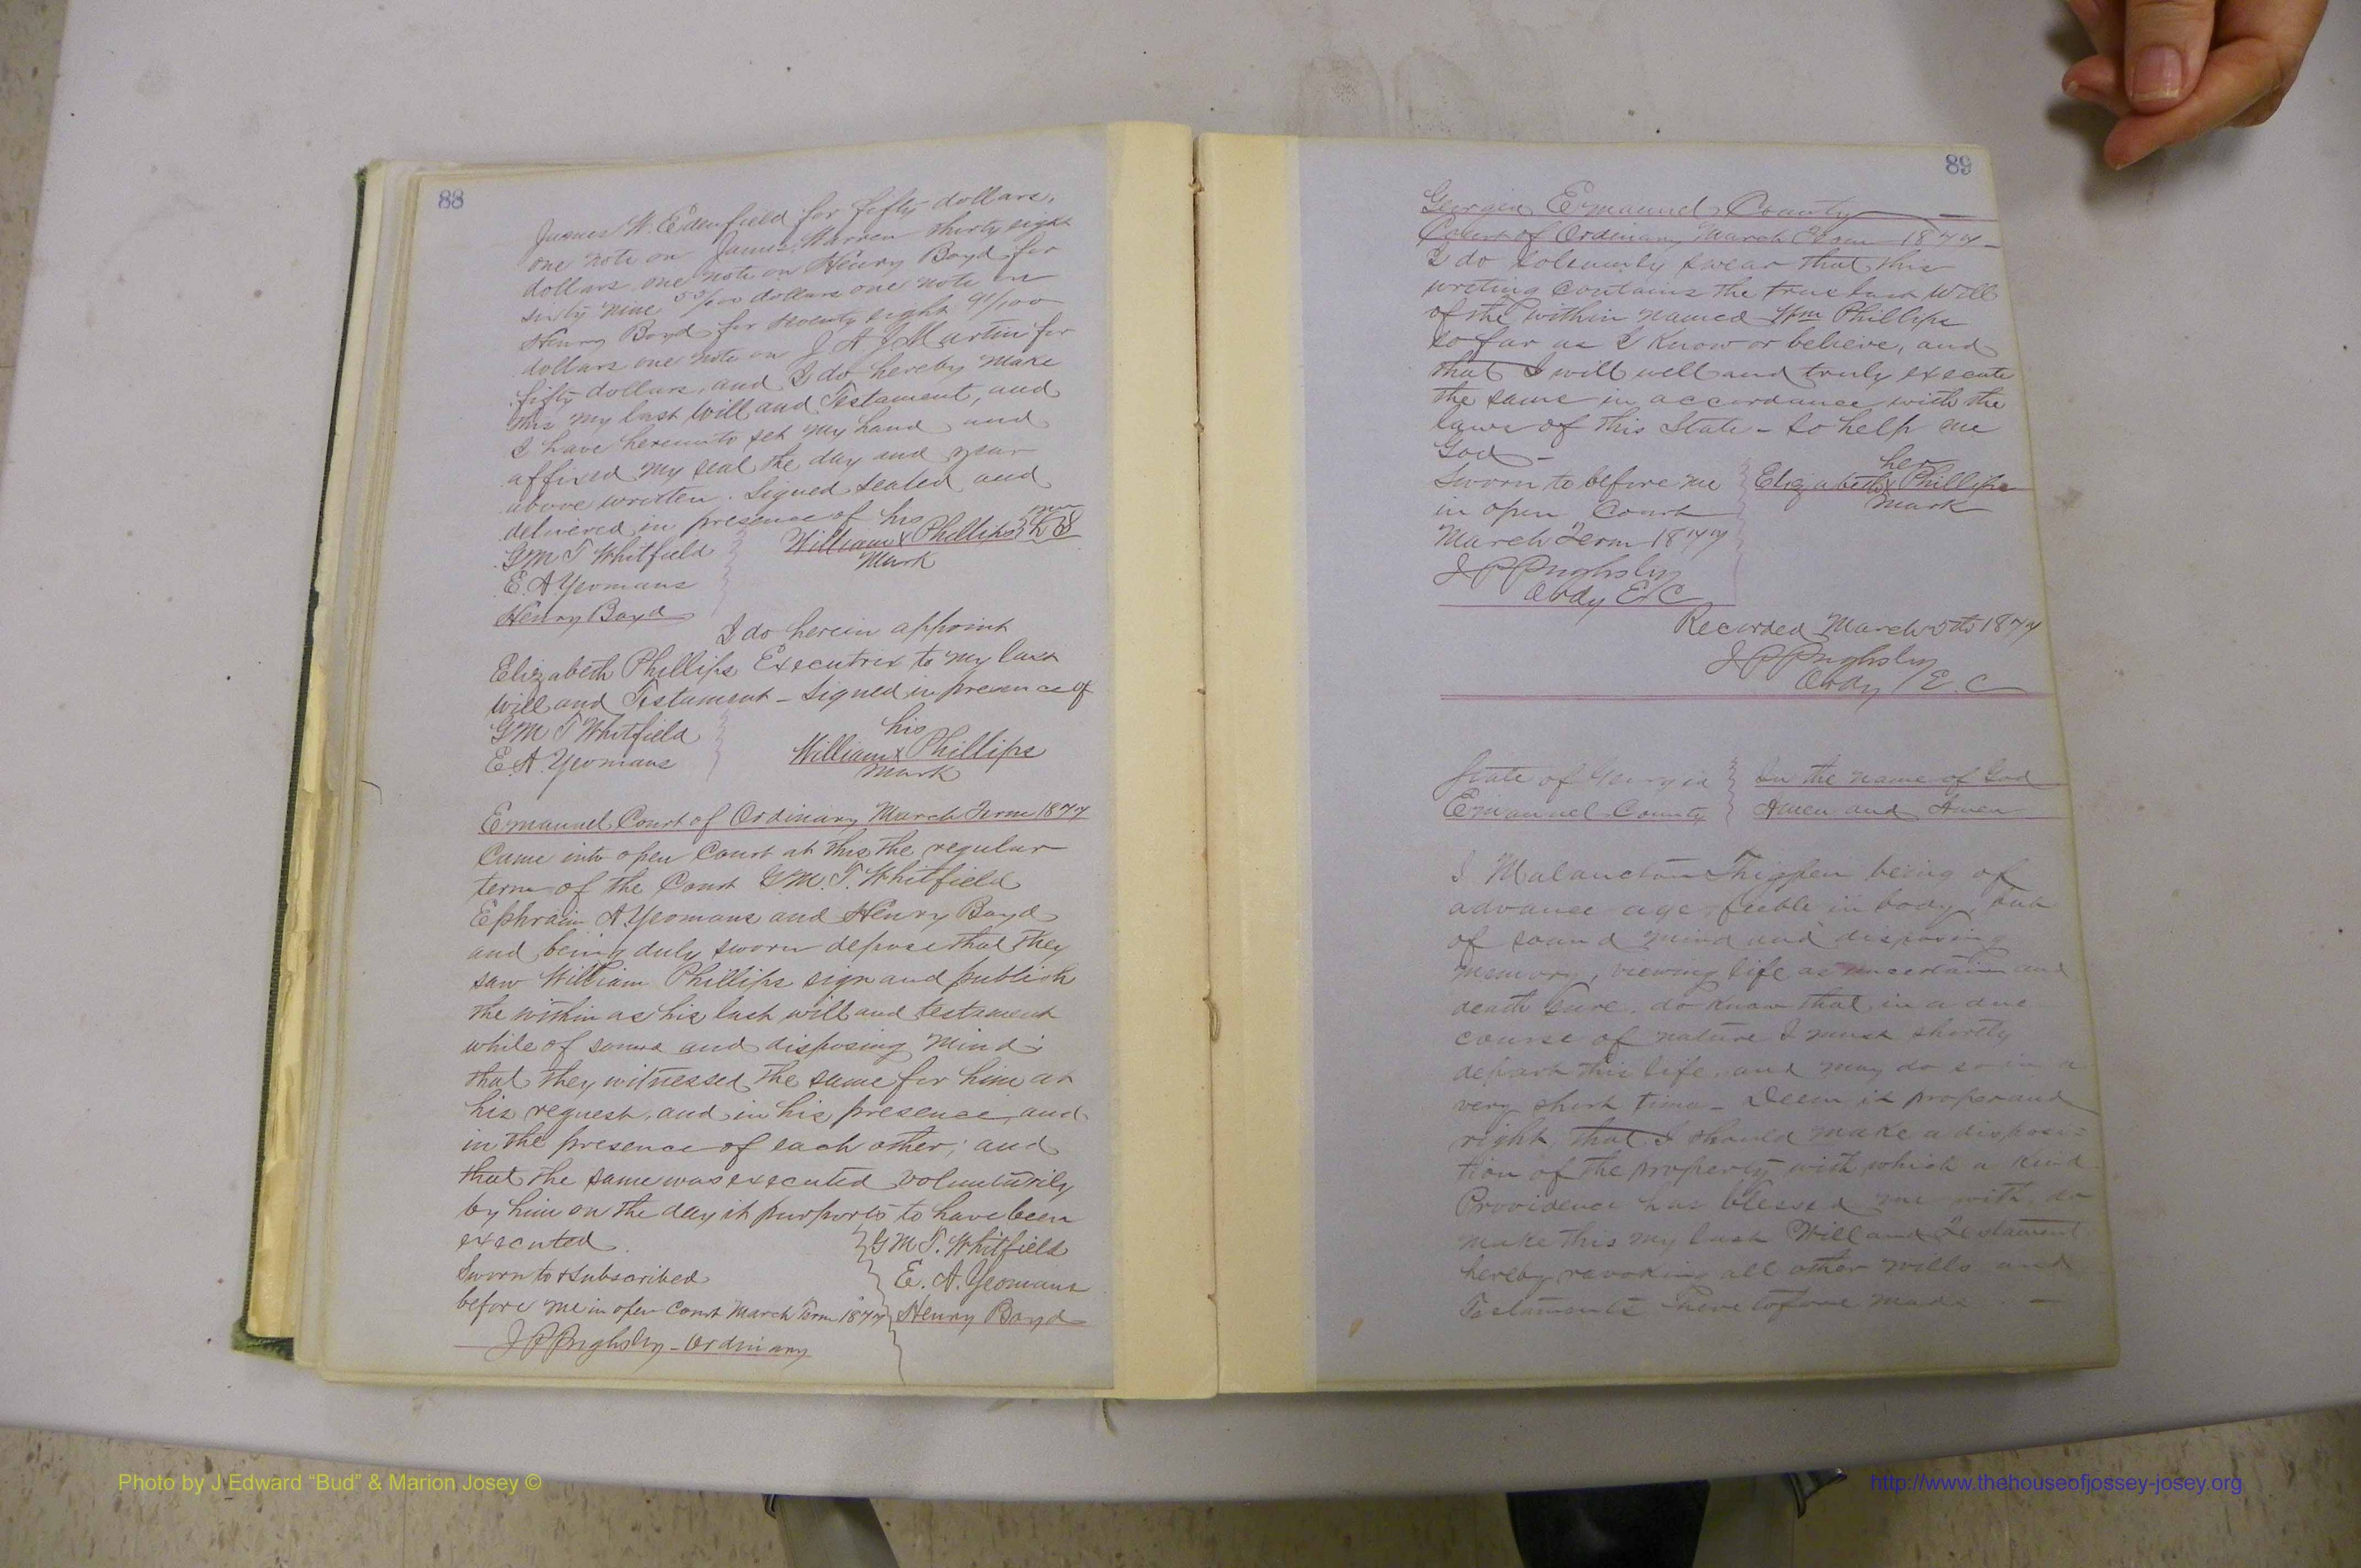 88
James W. Edenfield for fifty dollars,
one note on James Warren thirty eight
dollars one note on Henry Boyd for
sixty nine 55/100 dollars one note on
Henry Boyd for twenty eight 91/100
dollars one note on J A J Martin for
fifty dollars, and I do hereby make
this my last Will and Testament, and
I have hereunto set my hand and
affixed my seal the day and year
above written. Signed sealed and
delivered in presence of his
G M T Whitfield William X Phillips
E. A Yeomans Mark
Henry Boyd
I do herein appoint
Elizabeth Phillips Executrix to my last
will and Testament - Signed in presence of
G M T Whitfield his
E. A. Yeomans William X Phillips
Mark
Emanuel Court of Ordinary March Term 1877
Came into open Court at this the regular
term of the Court G M. T. Whitfield
Ephraim A Yeomans and Henry Boyd
and being duly sworn depose that they
saw William Phillips sign and publish
the within as his last will and testament
while of sound and disposing mind;
that they witnessed the same for him at
his request, and in his presence, and
in the presence of each other; and
that the same was executed voluntarily
by him on the day it purports to have been
executed. G M T. Whitfield
Sworn to & Subscribed E. A. Yeomans
before me in open Court March Term 1877 Henry Boyd
J P Prughsly - Ordinary
89
Georgia Emanuel County
Court of Ordinary March Term 1877 -
I do Solemnly swear that this
writing Contains the true last Will
of the within named Wm Phillips
so far as I Know or believe, and
that I will well and truly execute
the same in accordance with the
laws of this State - So help me
God -
Sworn to before me Elizabeth her X mark Phillips
in open Court
March Term 1877
J P Prughsly
Ordy E C
Recorded March 5th 1877
J P Prughsly
Ordy E. C
State of Georgia In the name of God
Emanuel County Amen and Amen
I Malancton Thigpen being of
advance age, feeble in body, but
of sound mind and disposing
memory, viewing life as uncertain and
death sure, do know that in a due
course of nature I must shortly
depart this life, and may do so in a
very short time - Deem it proper and
right, that I should make a disposi=
tion of the property with which a kind
Providence has blessed me with, do
make this my last Will and Testament
hereby revoking all other wills and
Testaments heretofore made. -
Photo by J Edward “Bud” & Marion Josey ©
http://www.thehouseofjossey-josey.org